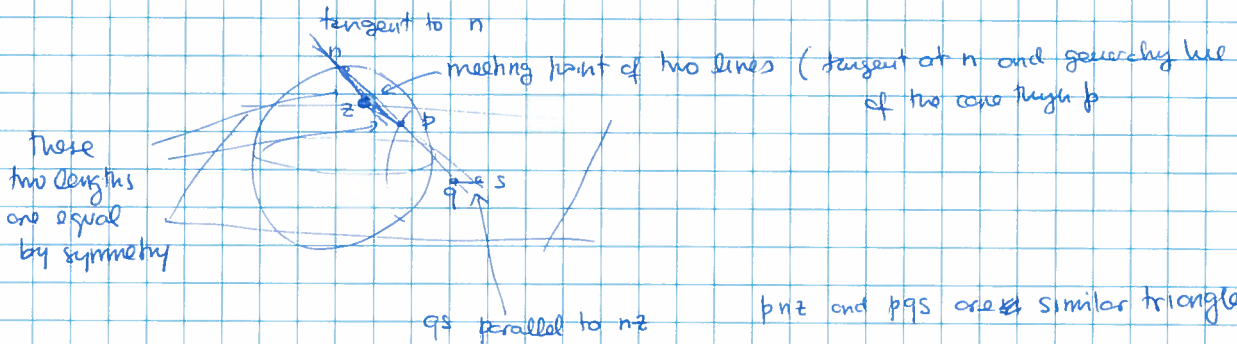 tangent to n
n
meeting point of two lines ( tangent at n and generating line
of the cone through p
z
p
these
two lengths
are equal
by symmetry
q
s
qs parallel to nz
pnz and pqs are similar triangle